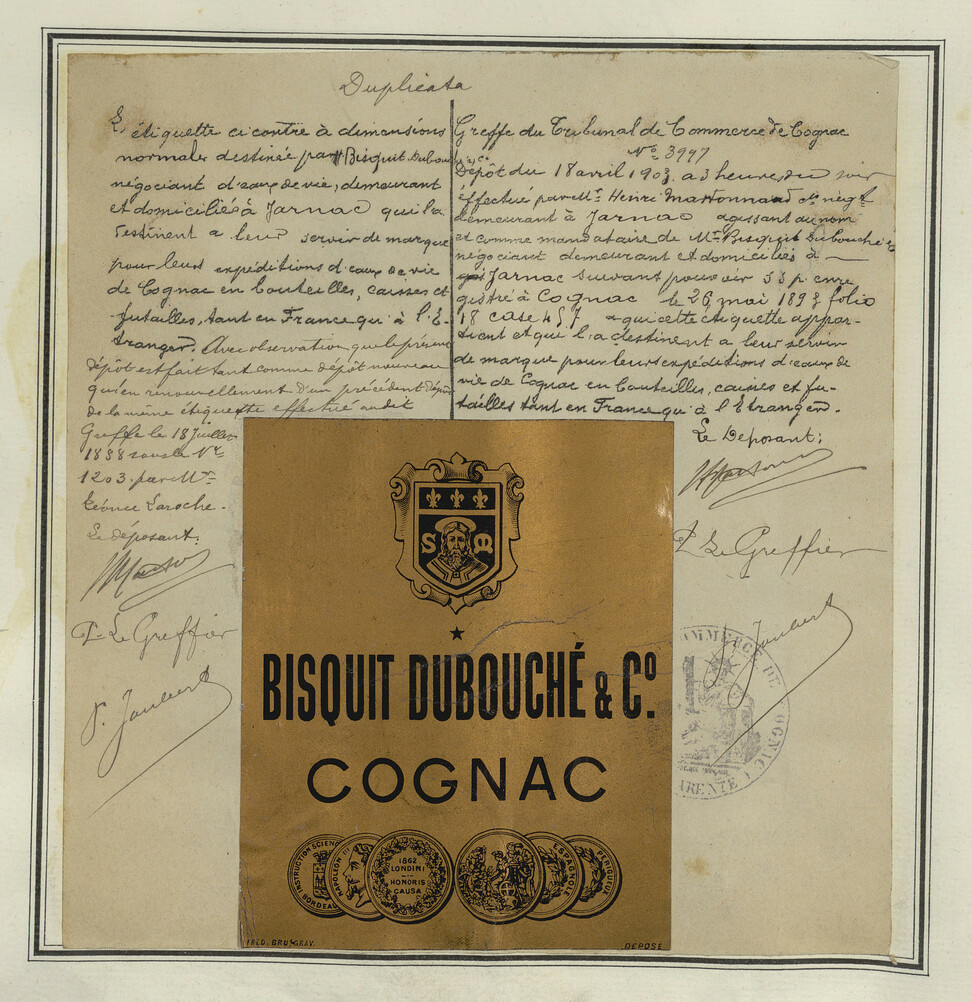 Duplicata
L'étiquette ci contre à dimensions
normales destinée par Mr Bisquit Dubouché & Co
négociant d'eaux de vie, demeurant
et domiciliés à Jarnac qui la
destinent a leur servir de marque
pour leurs expéditions d'eaux de vie
de Cognac en bouteilles, caisses et
futailles, tant en France qu'à l'E-
tranger. Avec observation que le présent
dépôt est fait tant comme dépôt nouveau
qu'en renouvellement d'un précédent dépôt
de la même étiquette effectué audit
Greffe le 18 Juillet
1888 sous le No
1203 par Mr
Léonce Laroche.
Le déposant:
Pr Le Greffier
P. Jaubert
Greffe du Tribunal de Commerce de Cognac
No 3997
Dépôt du 18 avril 1903 a 3 heures du soir
effectué par Mr Henri Martonnaud négt
demeurant à Jarnac agissant au nom
et comme mandataire de Mr Bisquit Dubouché &
négociant demeurant et domiciliés à
Jarnac suivant pouvoir SSP enre
gistré à Cognac le 26 mai 1893 folio
18 case 457 a qui cette étiquette appar-
tient et qui l'a destinent a leur servir
de marque pour leurs expéditions d'eaux de
vie de Cognac en bouteilles, caisses et fu-
tailles tant en France qu'à l'Etranger.
Le Deposant:
Pr Le Greffier
Jaubert
COMMERCE DE COGNAC
S M
BISQUIT DUBOUCHÉ & Co.
COGNAC
INSTRUCTION SCIEN
BORDEAU
NAPOLEON III
1862
LONDINI
HONORIS
CAUSA
ESPAGNOL
PERIGUEUX
FRED. BRUS GRAV.
DEPOSE